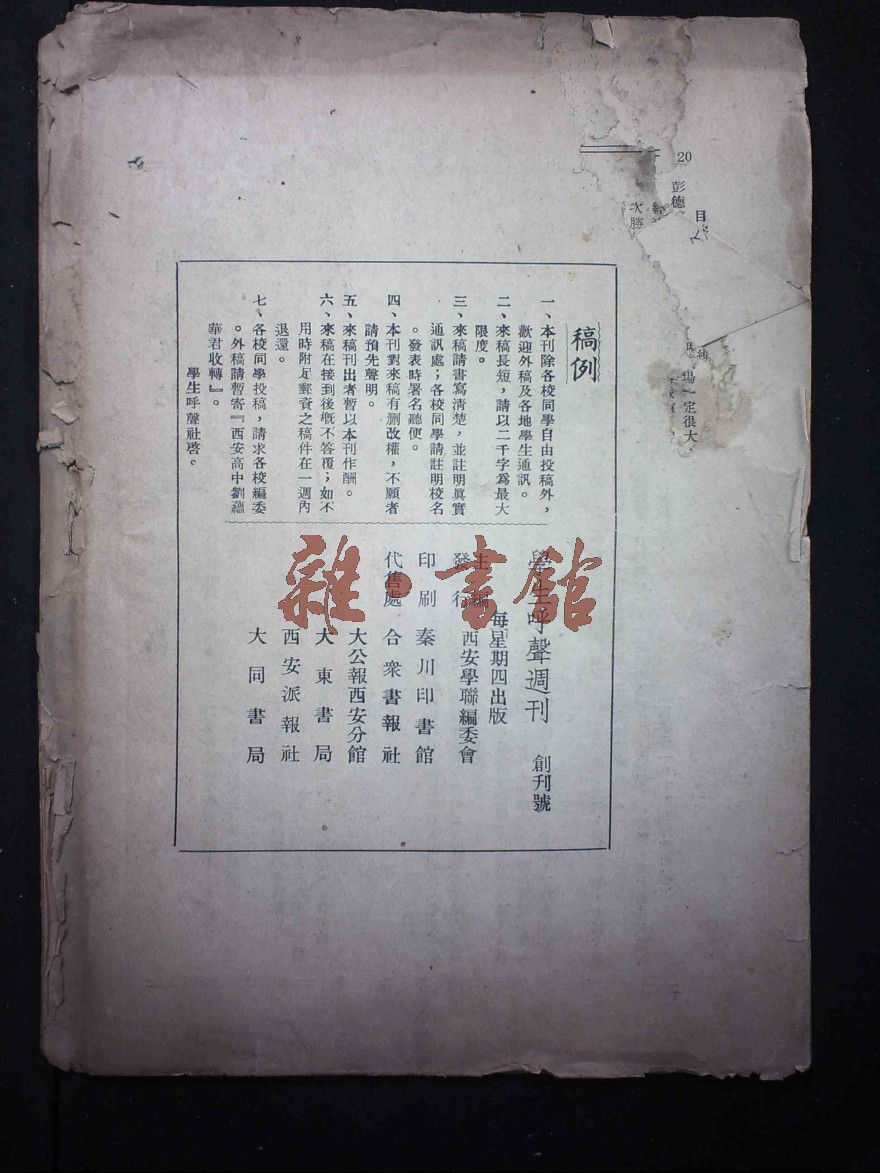 20
彭德
目
次勝
場一定很大
稿例
一、本刊除各校同學自由投稿外，
歡迎外稿及各地學生通訊。
二、來稿長短，請以二千字爲最大
限度。
三、來稿請書寫清楚，並註明眞實
通訊處；各校同學請註明校名
。發表時署名聽便。
四、本刊對來稿有删改權，不願者
請預先聲明。
五、來稿刊出者暫以本刊作酬。
六、來稿在接到後概不答覆；如不
用時附足郵資之稿件在一週內
退還。
七、各校同學投稿，請求各校編委
。外稿請暫寄『西安高中劉蘊
華君收轉』。
學生呼聲社啓。
學生呼聲週刊 創刊號
每星期四出版
主編
發行 西安學聯編委會
印刷 秦川印書館
代售處 合衆書報社
大公報西安分館
大東書局
西安派報社
大同書局
雜·書館